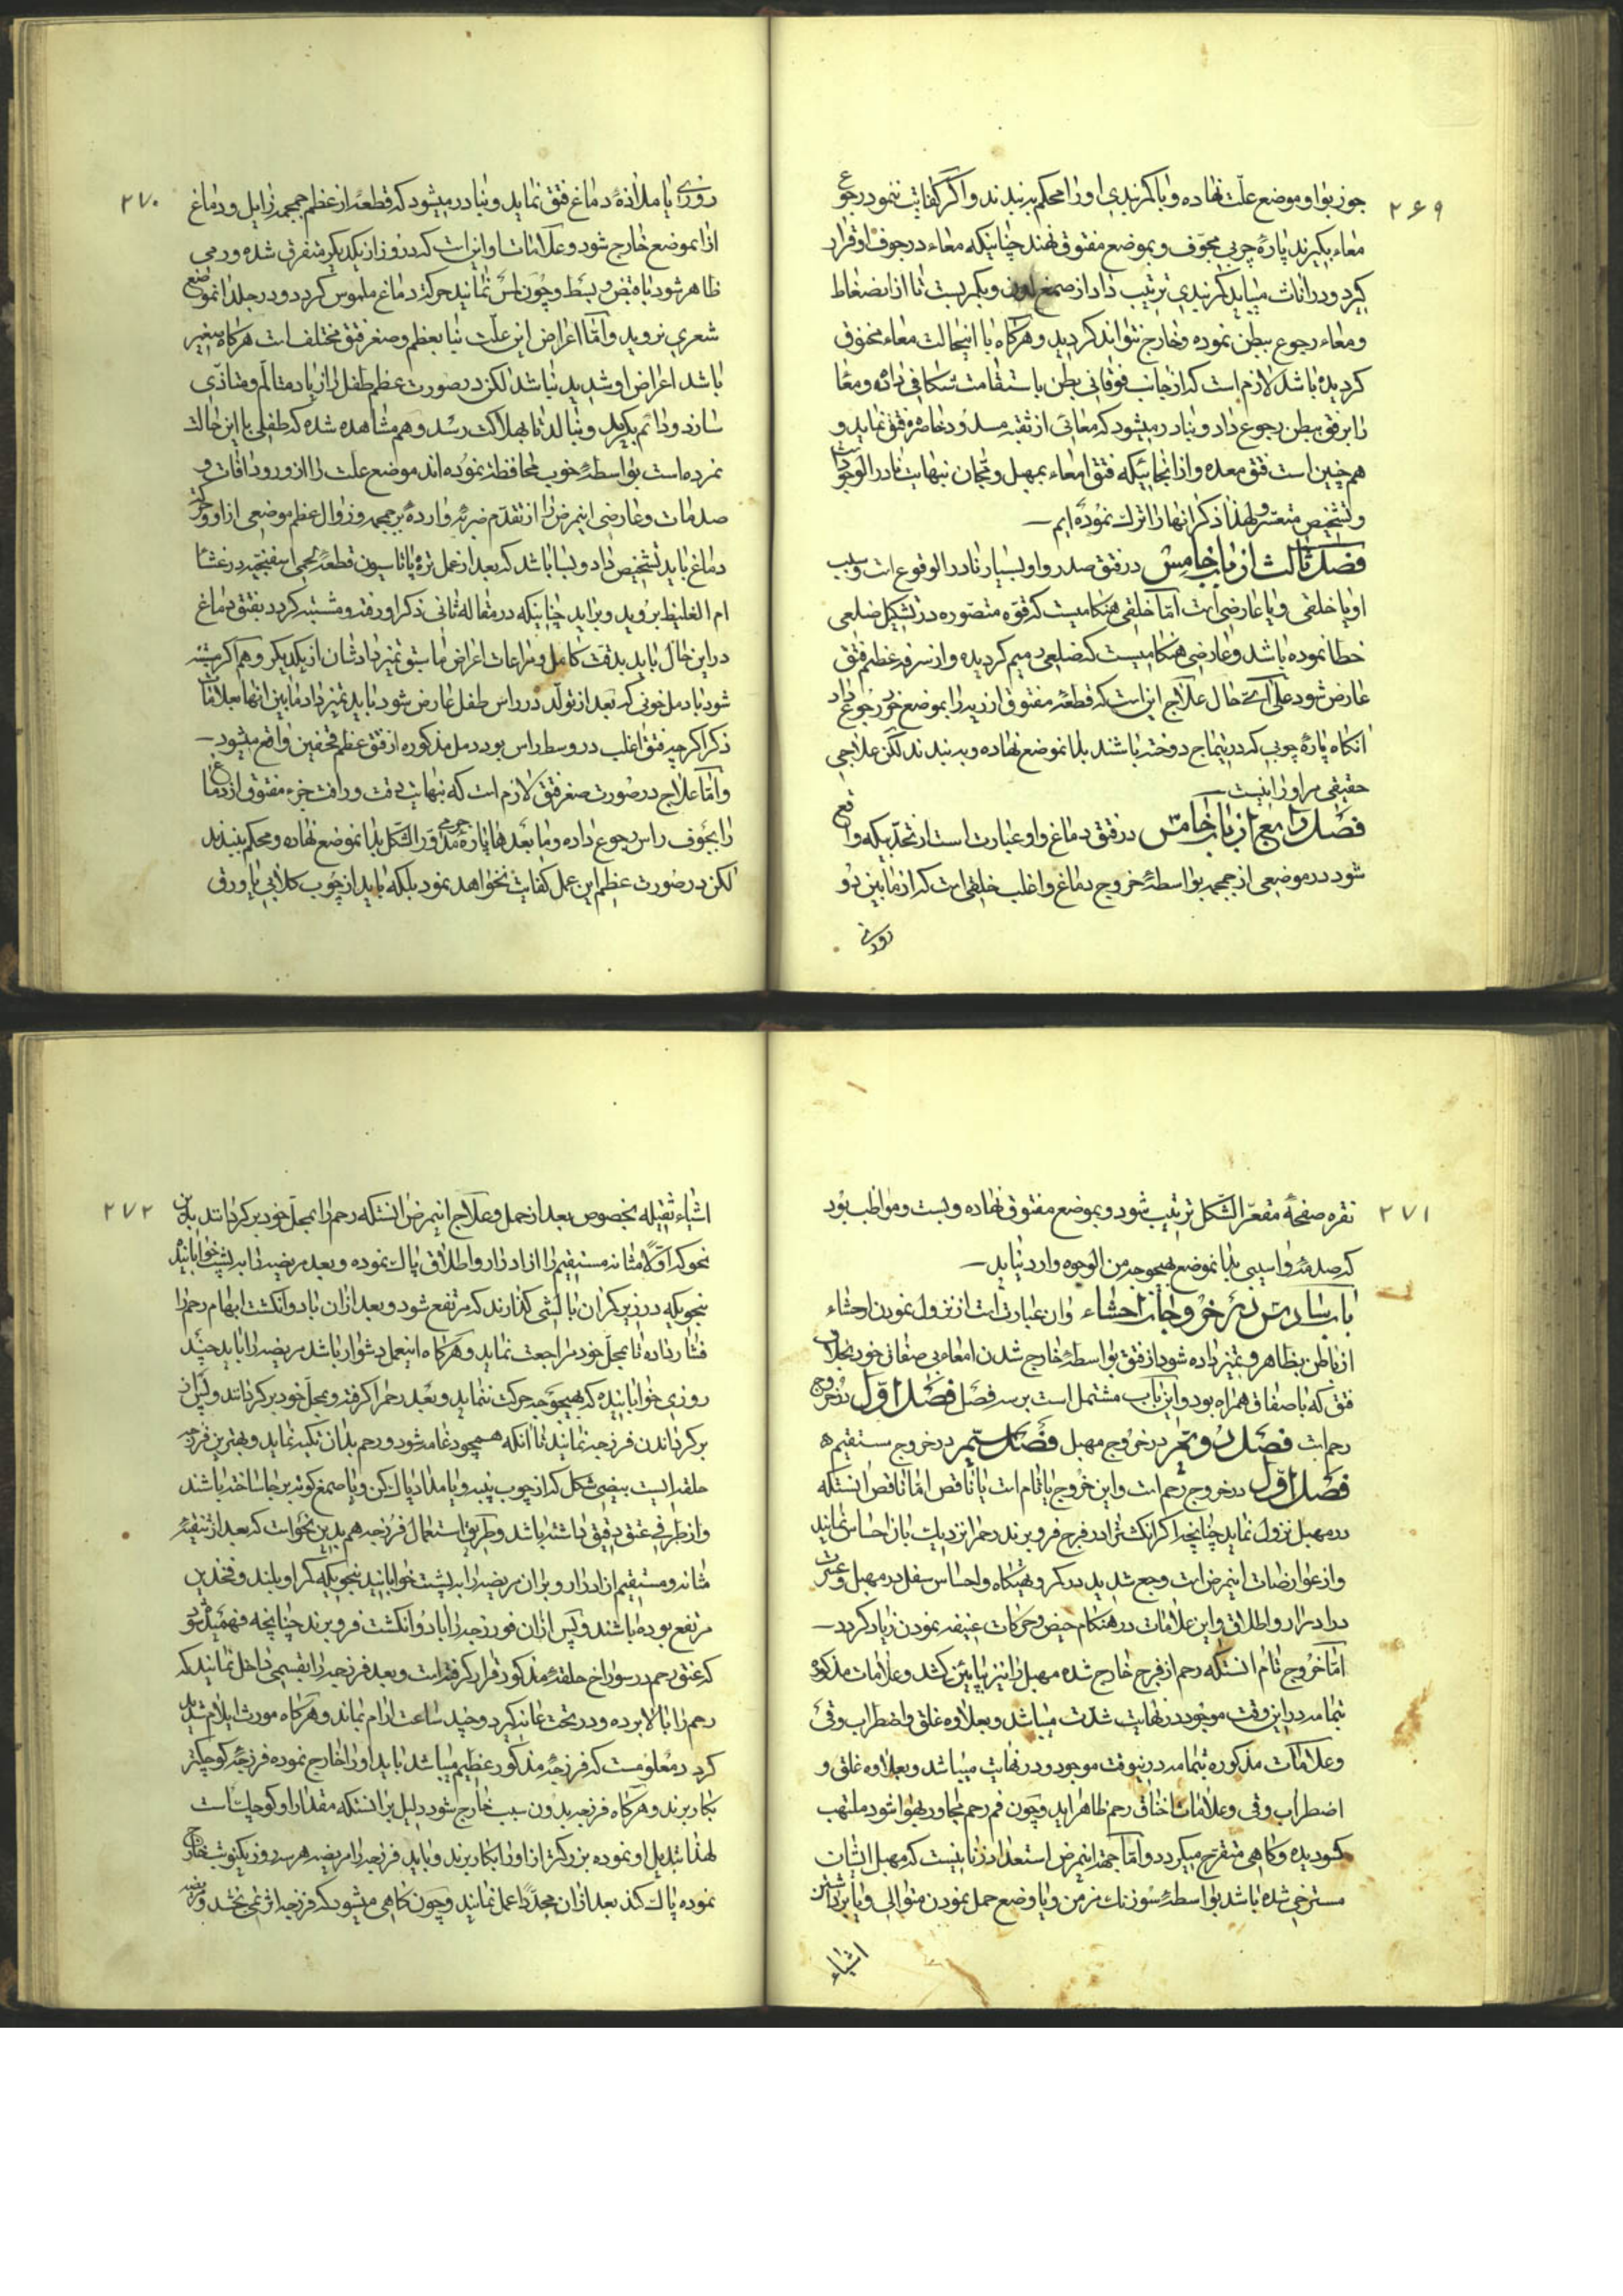 ۲۶۹
جوز بوا و موضع علّت نهاده و با کمربندی او را محکم بربندند و اگر کفایت ننمود رجوع
معاء بگیرند پارهٔ چوبی مجوّف و بموضع مفتوق نهند چنانیکه معاء در جوف او قرار
گیرد و در اناث میباید کمربندی ترتیب داد از صمغ و بکمر بست تا از انضغاط
و معاء رجوع ببطن نموده و خارج نتواند گردید و هرگاه با اینحالت معاء مخنوق
گردیده باشد لازم است که از جانب فوقانی بطن باستقامت شکافی داده و معا
را برفق ببطن رجوع داد و نادر میشود که معائی از ثقبه و خاصره فتق نماید و
هم چنین است فتق معده و از انجائیکه فتق امعاء بمهبل و عجان نهایت نادر الوجود
و تشخیص متعسّر و لهذا ذکر انها را ترک نموده ایم
فصل ثالث از باب خامس در فتق صدر و او بسیار نادر الوقوع است و سبب
او یا خلقی و یا عارضی است امّا خلقی هنگامیست که قوّه متصوّره در تشکیل ضلعی
خطا نموده باشد و عارضی هنکامیست که ضلعی رمیم گردیده و از سرفه عظیم فتق
عارض شود علی ایّ حال علاج این است که قطعهٔ مفتوق از ریه را بموضع خود رجوع داد
انگاه پارهٔ چوبی که در تیماج دوخته باشند بدانموضع نهاده و بربندند لکن علاجی
حقیقی مر او را نیست
فصل رابع از باب خامس در فتق دماغ و او عبارت است از تحدّبیکه واقع
شود در موضعی از جمجمه بواسطهٔ خروج دماغ و اغلب خلقی است که از مابین دو
روزی
۲۷۰
روزی یا ملاذهٔ دماغ فتق نماید و نادر میشود که قطعهٔ از عظم جمجمه زایل و دماغ
از انموضع خارج شود و علامات او این است که دروز از یکدیگر متفرق شده ورمی
ظاهر شود با قبض و بسط و چون لمس نمایند حرکت دماغ ملموس گردد و در جلد انموضع
شعری نروید و امّا اعراض این علّت بنا بعظم و صغر فتق مختلف است هرگاه صغیر
باشد اعراض او شدید نباشد لکن در صورت عظم طفل را زیاد متألّم و متاذّی
سازد و دائم بگرید و بنالد تا بهلاکت رسد و هم مشاهده شده که طفلی با این حالت
نمرده است بواسطهٔ خوب محافظت نموده اند موضع علّت را از ورود افات و
صدمات و عارضی اینمرض را از تقدّم ضربهٔ وارده بر جمجمه و زوال عظم موضعی از او و حرکت
دماغ باید تشخیص داد و بسا باشد که بعد از عمل تره پاناسیون قطعهٔ لحمی اسفنجیه در غشاء
ام الغلیظ بروید و برآید چنانیکه در مقاله ثانی ذکر او رفته و مشتبه گردد بفتق دماغ
در این حال باید بدقّت کامل و مراعات اعراض ماسبق تمیز داد شان از یکدیگر و هم اگر مشتبه
شود با دمل خونی که بعد از تولّد در راس طفل عارض شود باید تمیز داد مابین انها بعلامات
ذکر اگر چه فتق اغلب در وسط راس بود و دمل مذکوره از فتق عظم قحفین واقع میشود
و امّا علاج در صورت صغر فتق لازم است که بنهایت دقت و رافت جزء مفتوق از دماغ
را بجوف راس رجوع داده و ما بعدها پارهٔ چرمی مدوّر الشکل بدانموضع نهاده و محکم ببندند
لکن در صورت عظم این عمل کفایت نخواهد نمود بلکه باید از چوب کلابی یا ورق
۲۷۱
نقره صفحهٔ مقعّر الشکل ترتیب شود و بموضع مفتوق نهاده و بست و مواظب بود
که صدمهٔ و اسیبی بدانموضع بهیچوجه من الوجوه وارد نیاید
باب سادس در خروجات احشاء و ان عبارت است از نزول نمودن احشاء
از باطن بظاهر و تمیز داده شود از فتق بواسطهٔ خارج شدن امعاء بی صفاق خود بخلاف
فتق که با صفاق همراه بود و این باب مشتمل است بر سه فصل فصل اوّل در خروج
رحم است فصل دویّم در خروج مهبل فصل سیّم در خروج مستقیم
فصل اوّل در خروج رحم است و این خروج یا تام است یا ناقص امّا ناقص انستکه
در مهبل نزول نماید چنانچه اگر انگشتی را در فرج فرو برند رحم را نزدیک بان احساس نمایند
و از عوارضات اینمرض است وجع شدید در کمر و تهیگاه و احساس سفل در مهبل و عسرت
در ادرار و اطلاق و این علامات در هنگام حیض و حرکات عنیفه نمودن زیاد گردد
امّا خروج تام انستکه رحم از فرج خارج شده مهبل را نیز بپایین کشد و علامات مذکوره
بتمامه در این وقت موجود در نهایت شدت میباشد و بعلاوه غلق و اضطراب و قی
و علامات مذکوره بتمامه در اینوقت موجود و در نهایت میباشد و بعلاوه غلق و
اضطراب و قی و علامات اختناق رحم ظاهر اید و چون فم رحم مجاور بهوا شود ملتهب
گردیده و گاهی متقرّح میگردد و امّا جهته اینمرض استعداد زنانیست که مهبل ایشان
مسترخی شده باشد بواسطهٔ سوزنک مزمن و یا وضع حمل نمودن متوالی و یا برداشتن
اشیاء
۲۷۲
اشیاء ثقیله بخصوص بعد از حمل و علاج اینمرض انستکه رحم را بمحل خود برگردانند بدین
نحو که اوّلا مثانه مستقیم را از ادرار و اطلاق پاک نموده و بعد مریضه را به پشت خوابانیده
بنحویکه در زیر کمر ان بالشی گذارند که مرتفع شود و بعد از ان با دو انگشت ابهام رحم را
فشار داده تا بمحل خود مراجعت نماید و هرگاه اینعمل دشوار باشد مریضه را باید چند
روزی خوابانیده که بهیچوجه حرکت ننماید و بعد رحم را گرفته و بمحل خود برگردانند و پس از
برگرداندن فرزجه نمایند تا انکه و رحم بدان تکیه نماید و بهترین فرزجه
حلقه ایست بیضی شکل که از چوب پنبه و یا مداد پاک کن و یا صمغ گوته برجا ساخته باشند
و از طرفی عنق دقیق داشته باشد و طریق استعمال فرزجه هم بدین نحو است که بعد از تنقیهٔ
مثانه و مستقیم از ادرار و براز مریضه را به پشت خوابانید بنحویکه کمر او بلند و فخذین
مرتفع بوده باشند و پس از ان فورزجه را با دو انگشت فرو برند چنانچه فهمیده شود
که عنق رحم در سوراخ حلقهٔ مذکور قرار گرفته است و بعد فرزجه را بقسمی داخل نمایند که
رحم را بالا برده و در تحت عانه گیرد و چند ساعت ارام بماند و هرگاه مورث ایلام شدید
گردد معلومست که فرزجهٔ مذکور عظیم میباشد باید او را خارج نموده فرزجهٔ کوچکتر
بکار برند و هرگاه فرزجه بدون سبب خارج شود دلیل بر انستکه مقدار او کوچک است
لهذا تبدیل او نموده بزرگتر از او را بکار برند و باید فرزجه را مریضه هر سه روز یکنوبت خارج
نموده پاک کند بعد از ان مجدّدا عمل نمایند و چون گاهی میشود که فرزجه اثر نمی بخشد و مریضه